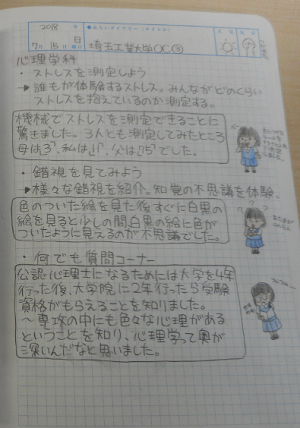 2018 年
7月 15日 埼玉工業大学〇C③
心理学科
・ストレスを測定しよう
→誰もが体験するストレス。みんながどのくらい
ストレスを抱えているのか測定する。
機械でストレスを測定できることに
驚きました。3人とも測定してみたところ
でした。
・錯視を見てみよう
→様々な錯視を紹介。知覚の不思議を体験。
色のついた絵を見た後すぐに白黒の
絵を見ると少しの間白黒の絵に色が
ついたように見えるのが不思議でした。
・何でも質問コーナー
公認心理士になるためには大学を4年
行った後、大学院に2年行ったら受験
資格がもらえることを知りました。
〜専攻の中にも色々な心理がある
ということを知り、心理学って奥が
深いんだなと思いました。